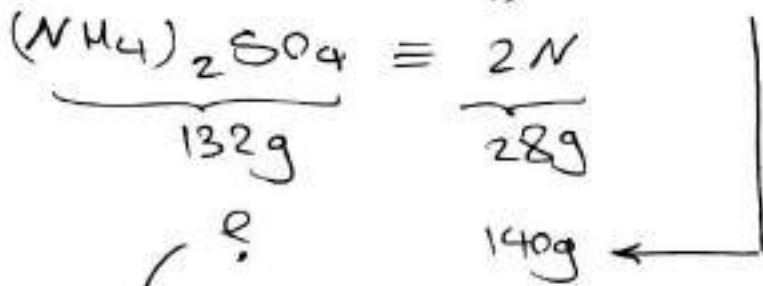 (NH4)2SO4 ≡ 2N
132g 28g
? 140g